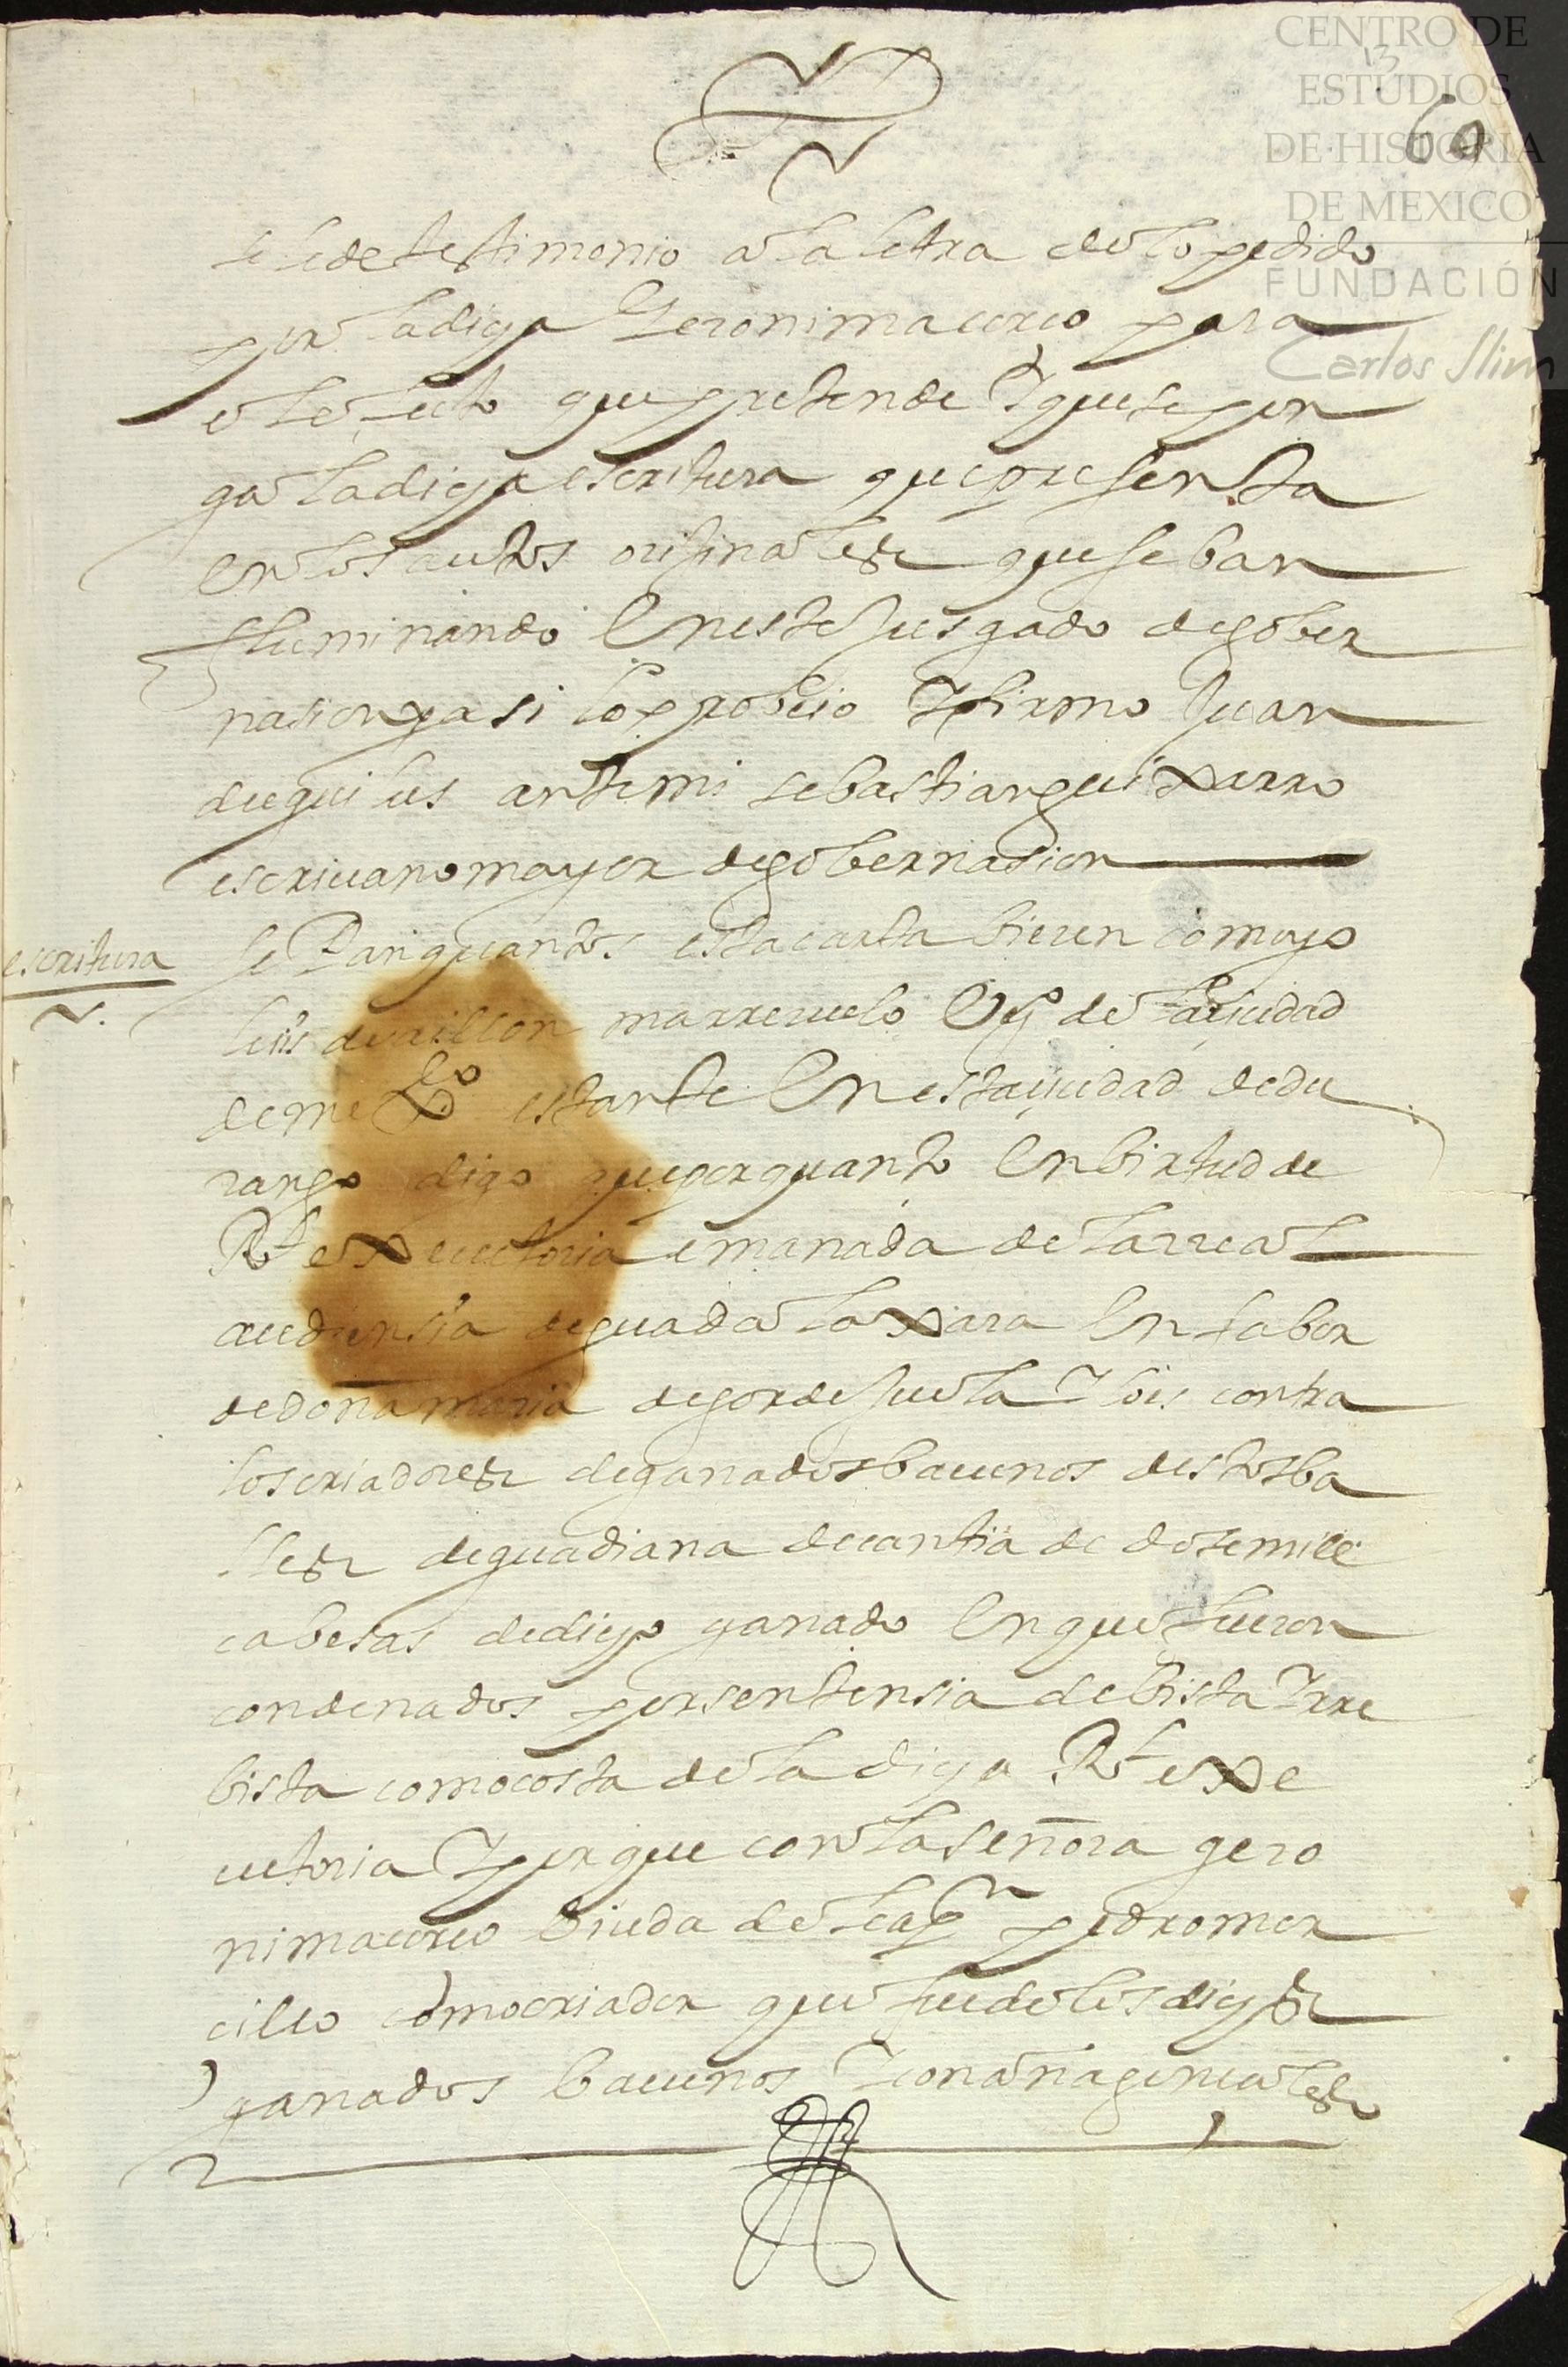 CENTRO DE
ESTUDIOS
DE HISTORIA
DE MEXICO
FUNDACIÓN
Carlos Slim
13
se le de testimonio a la letra de lo pedido
por la dicha Geronima curco para
el efecto que pretende Y que se pon
ga la dicha escritura que presenta
en los autos orijinales que se ban
fluminando En este Jusgado de gober
nasion y asi lo probeio Y firmo Juan
de antemi sebastian guixarro
escriuano mayor de gobernasion
escritura
Sepan quantos esta carta bieren como yo
luis de marruelo de la ciudad
de mexco estante En esta ciudad de du
rango digo que por quanto En birtud de
Rl executoria emanada de la rreal
audiensia de guadalaxara En fabor
de doña maria de gordejuela Y contra
los criadores de ganados bacunos destos ba
lles de guadiana de cantia de dose mill
cabesas de dicho ganado En que fueron
condenados por sentensia de bista Y rre
bista como costa de la dicha Rl exe
cutoria Y porque con la señora gero
nima curco biuda del capn pedro mor
cillo como criador que fue de los dichos
ganados bacunos